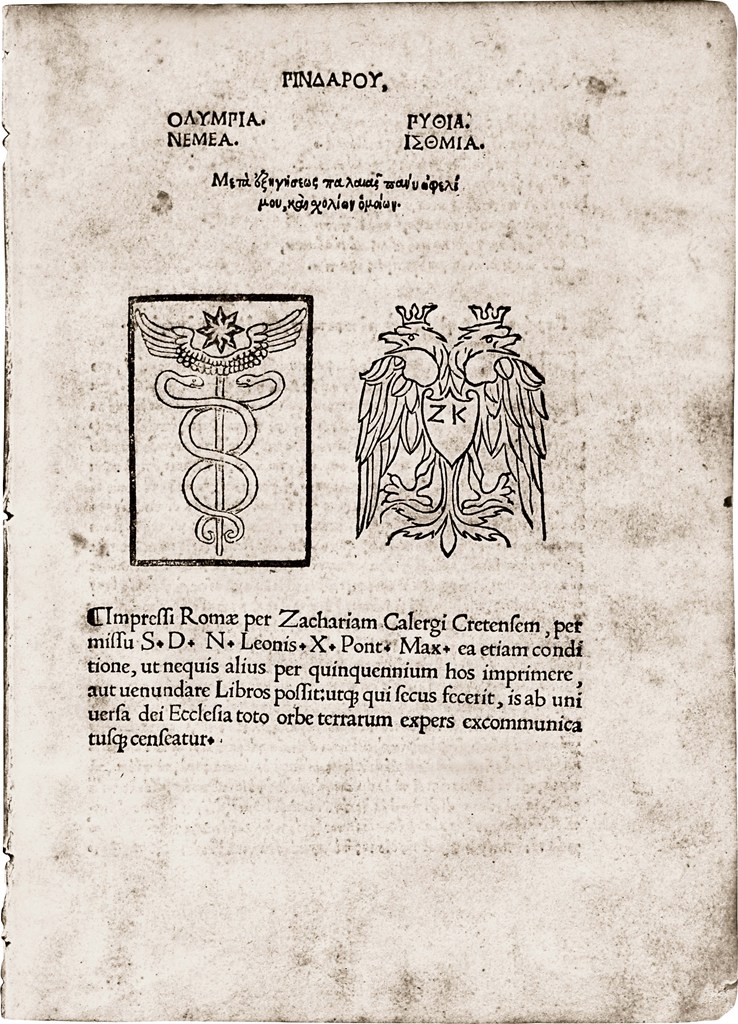 ΠΙΝΔΑΡΟΥ,
ΟΛΥΜΠΙΑ. ΠΥΘΙΑ.
ΝΕΜΕΑ. ΙΣΘΜΙΑ.
Μετὰ ἐξηγήσεως παλαιᾶς πάνυ ὠφελί
μου, καὶ σχολίων ὁμοίων.
Ζ Κ
¶Impressi Romæ per Zachariam Calergi Cretensem, per
missu S. D. N. Leonis. X. Pont. Max. ea etiam condi
tione, ut nequis alius per quinquennium hos imprimere,
aut uenundare Libros possit: utq; qui secus fecerit, is ab uni
uersa dei Ecclesia toto orbe terrarum expers excommunica
tusq; censeatur.